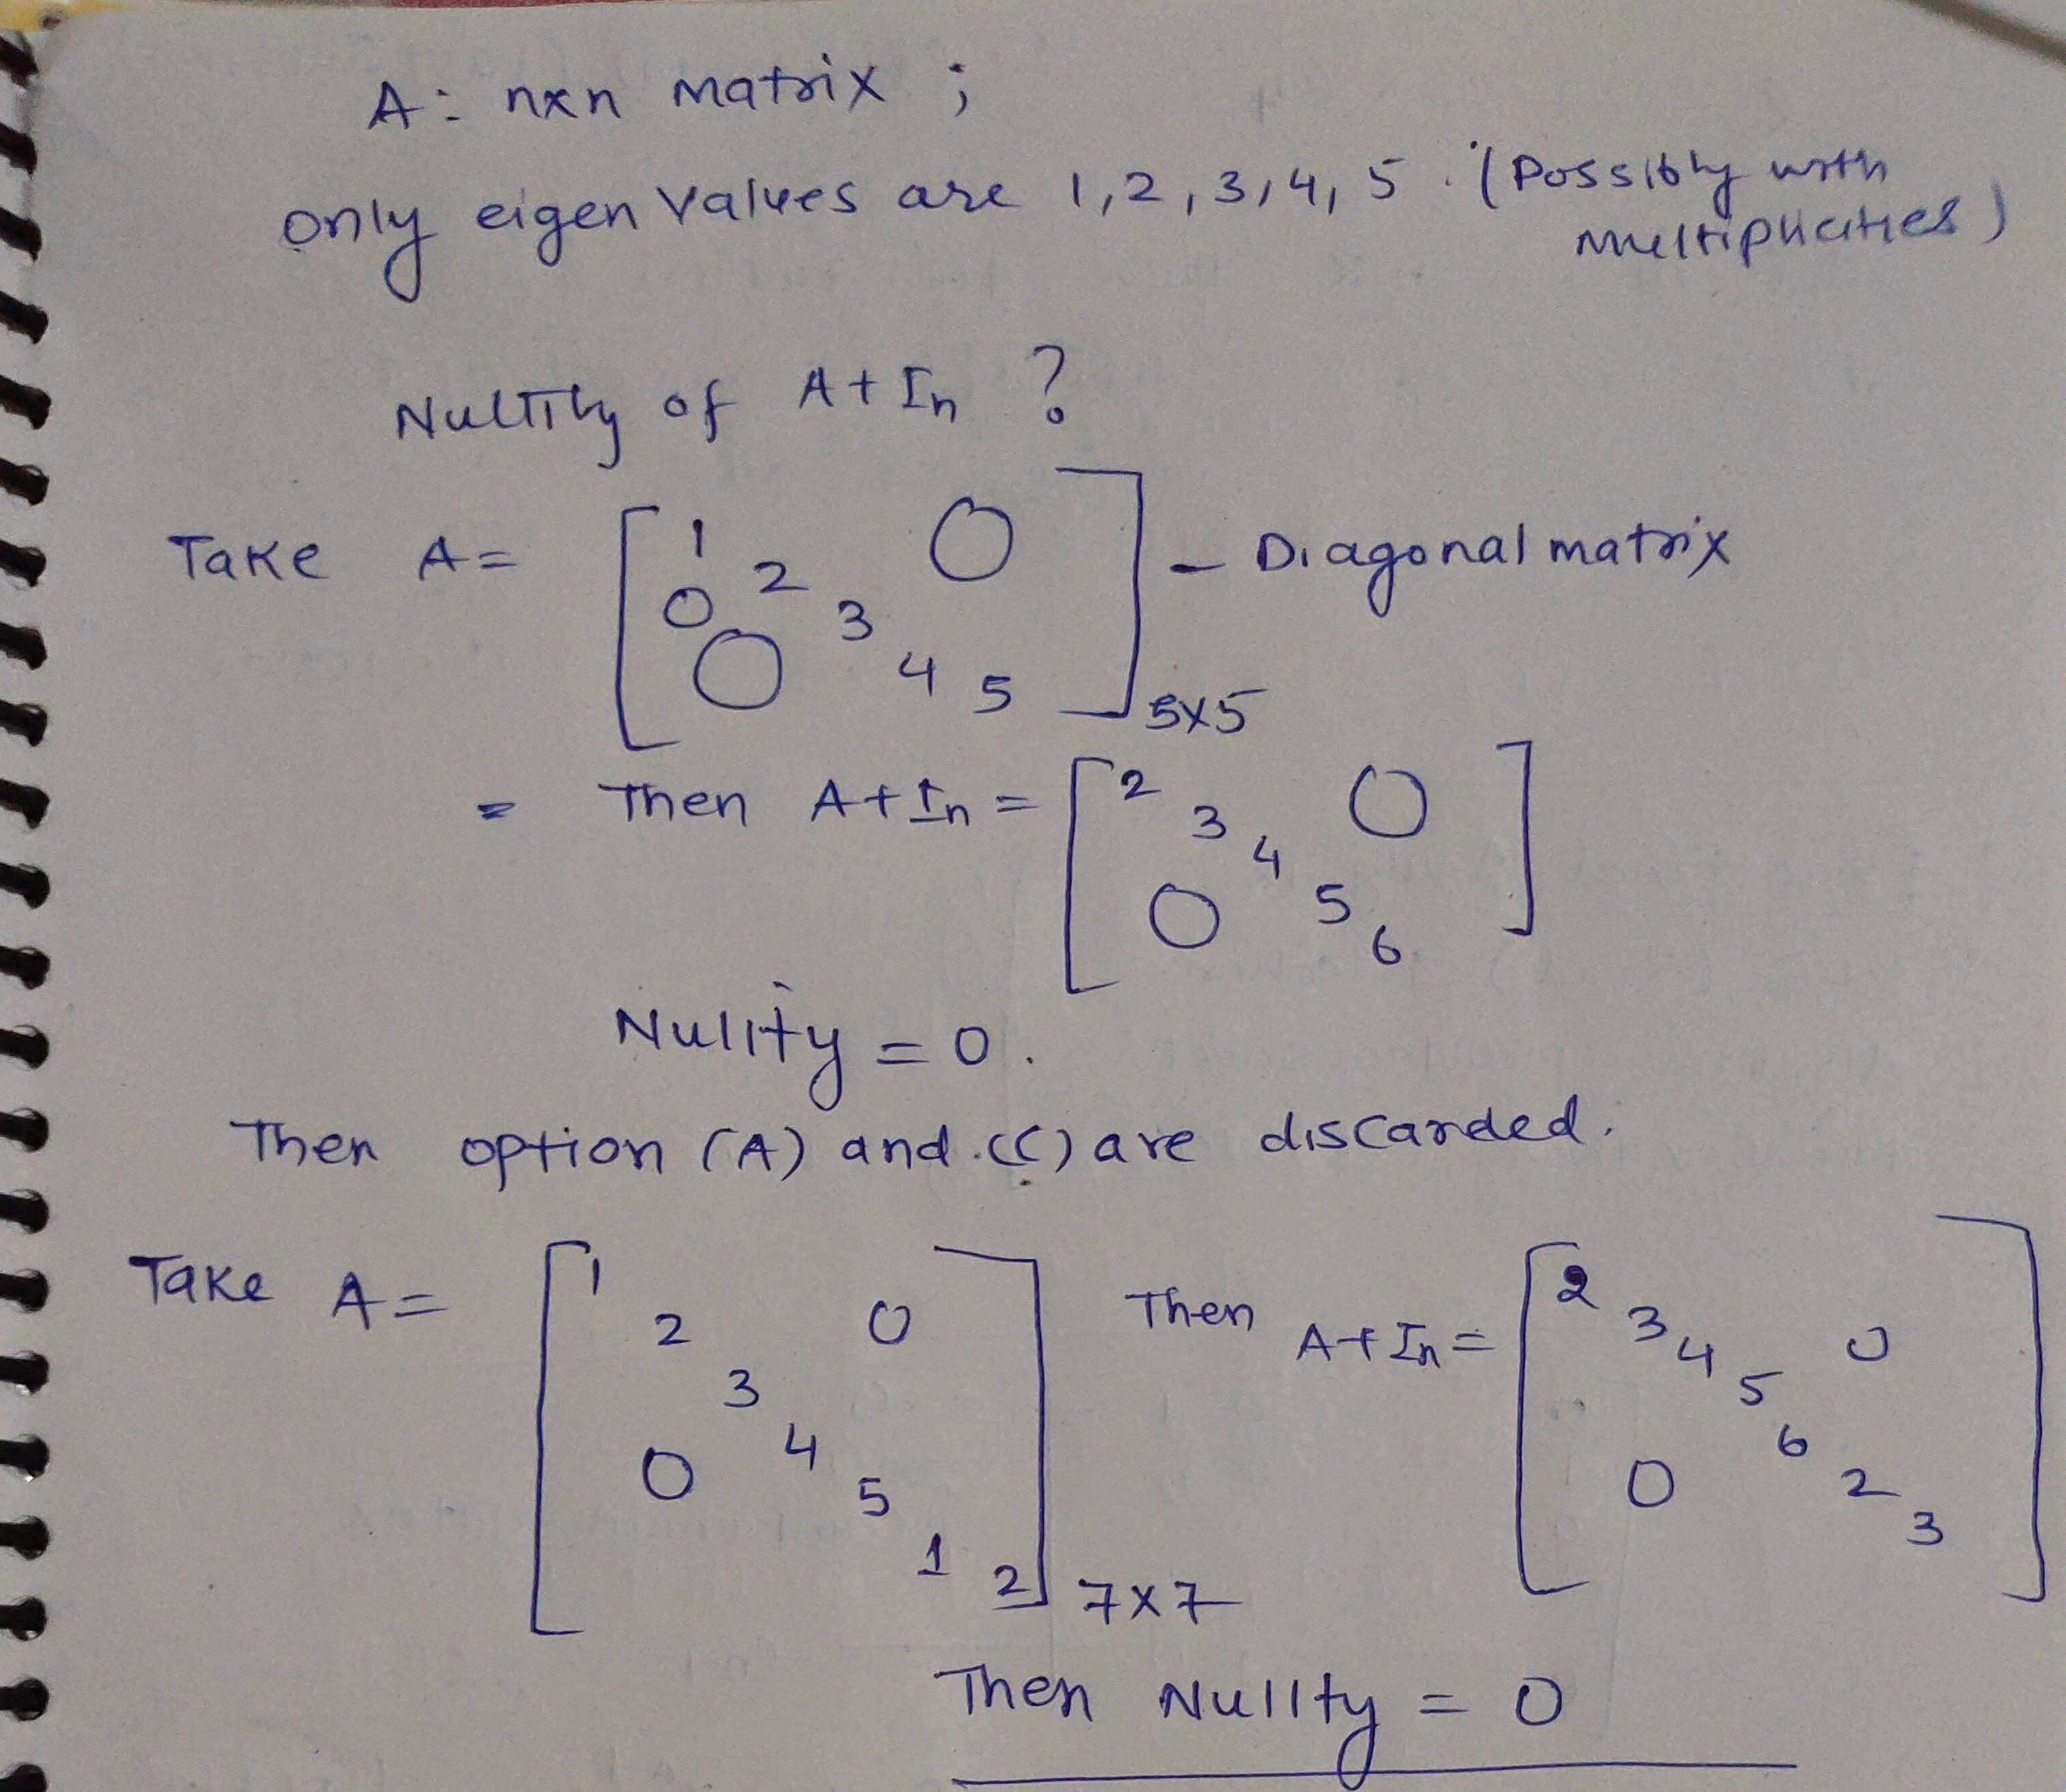 A: nxn matrix ;
only eigen values are 1,2,3,4,5. (Possibly with
multiplicities)
Nultity of A+In ?
Take A= [1 0
0 2
3
0 4 5] 5x5 - Diagonal matrix
= Then A+In = [2 0
3
4
0 5
6]
Nulity = 0.
Then option (A) and (C) are discarded.
Take A= [1
2 0
3
0 4
5
1 2] 7x7
Then A+In = [2
3 4 0
5
6
0 2
3]
Then Nullty = 0